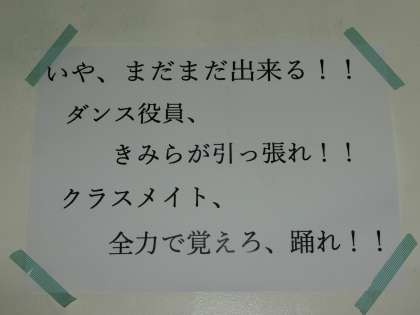 いや、まだまだ出来る！！
ダンス役員、
きみらが引っ張れ！！
クラスメイト、
全力で覚えろ、踊れ！！